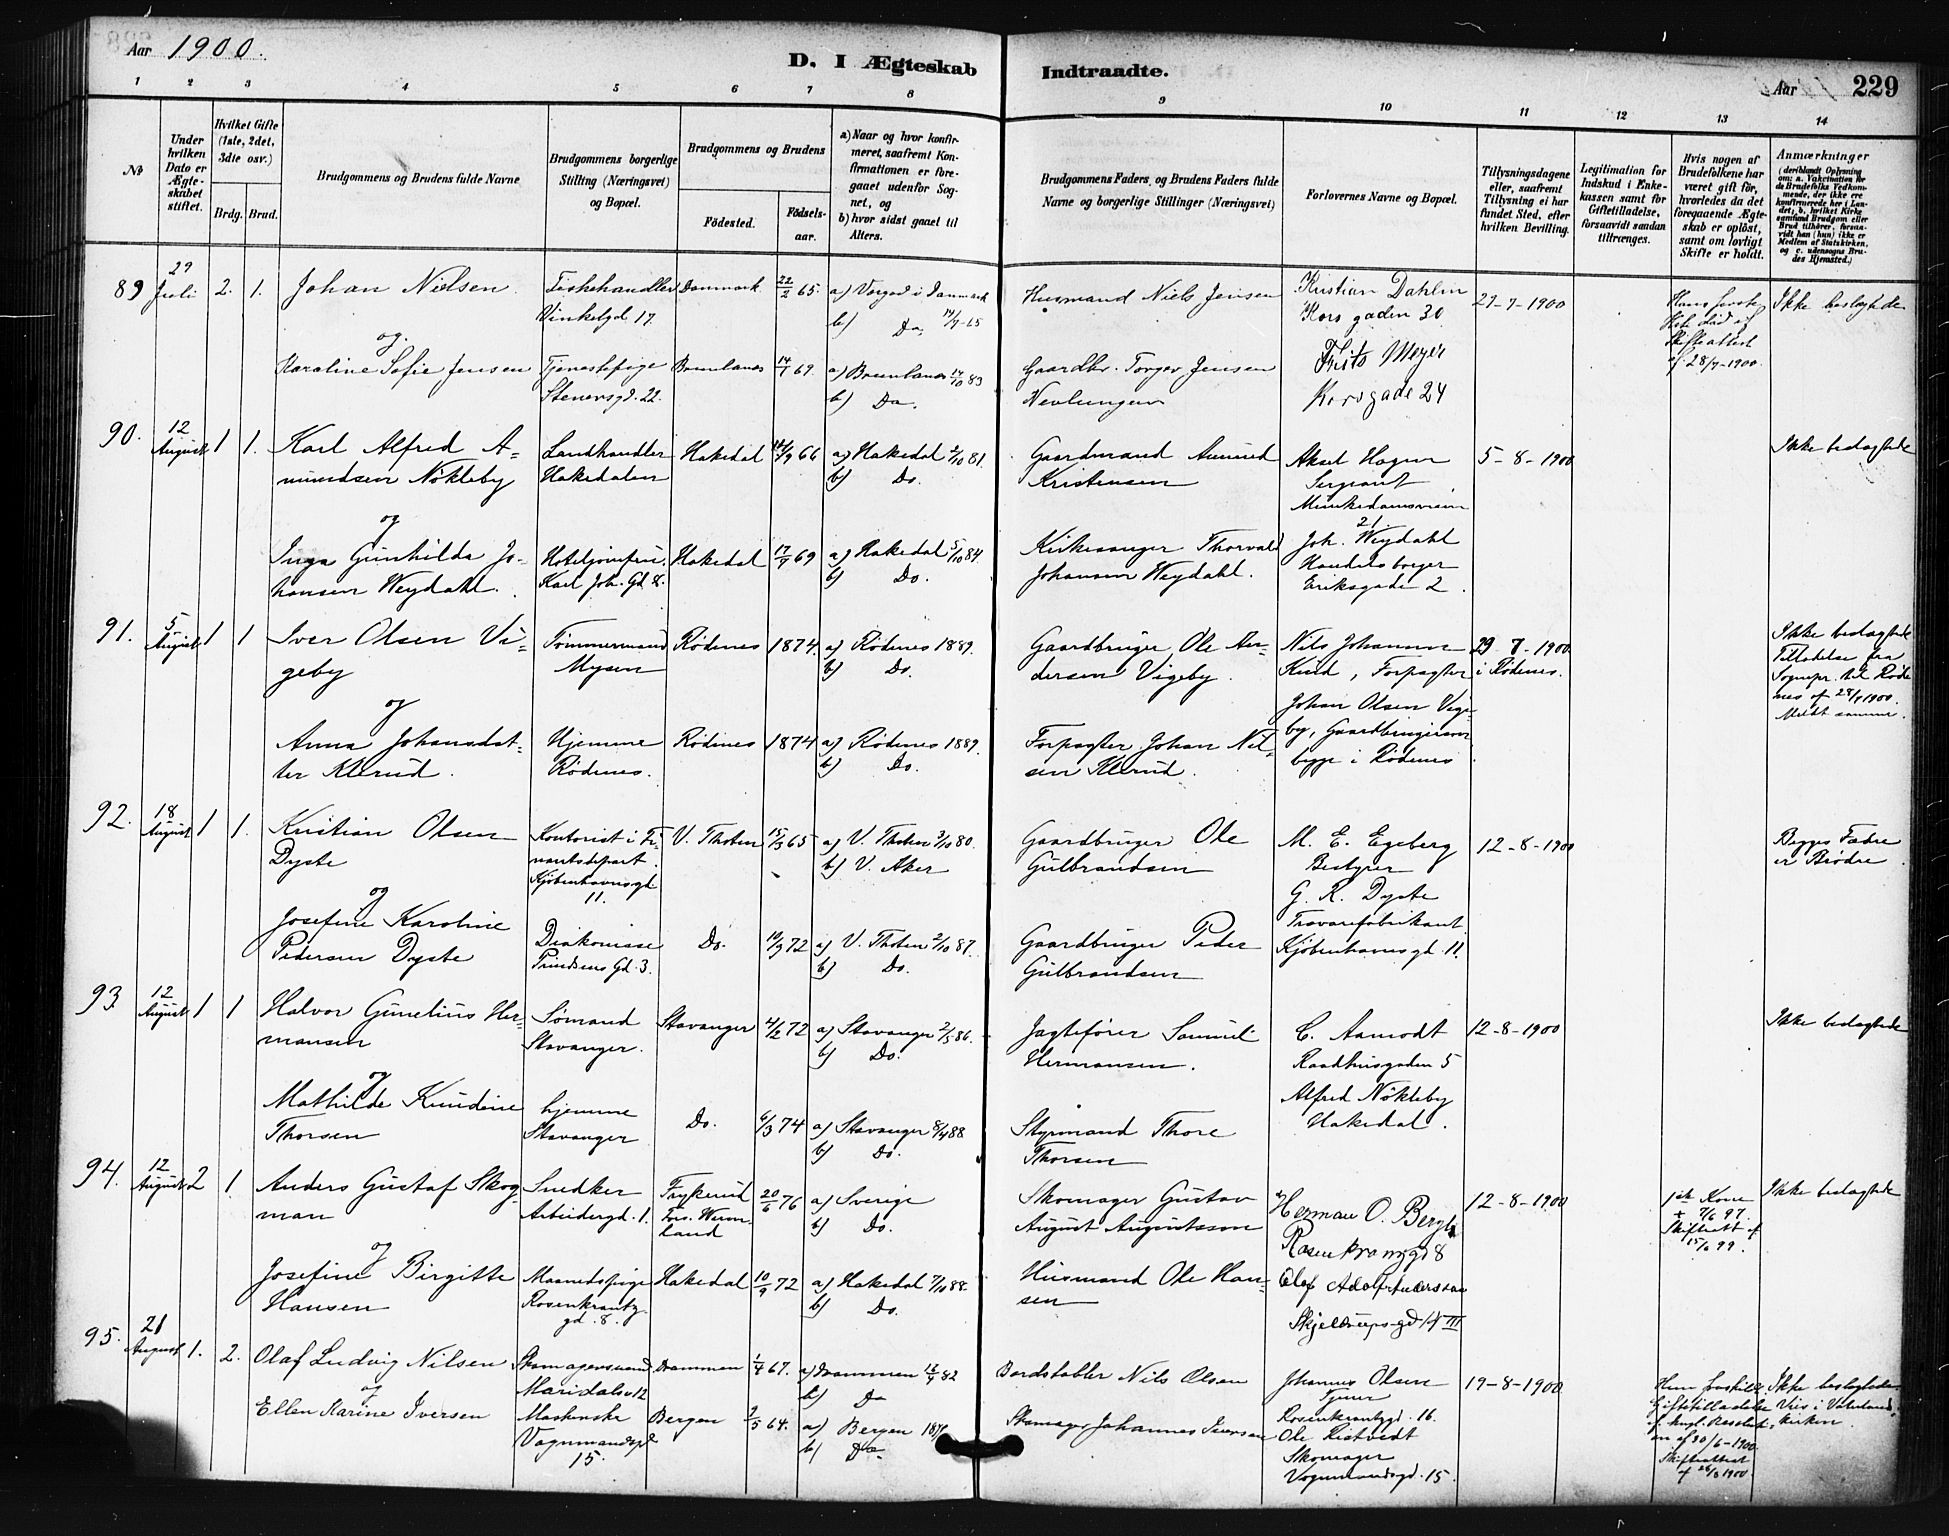 Aar 1900.
D. I Ægteskab Indtraadte.
Aar 229
1 2 3 4 5 6 7 8 9 10 11 12 13 14
№
Under hvilken Dato er Ægteskabet stiftet.
Hvilket Gifte (1ste, 2det, 3die osv.)
Brdg. Brud.
Brudgommens og Brudens fulde Navne
Brudgommens borgerlige Stilling (Næringsvei) og Bopæl.
Brudgommens og Brudens
Fødested. Fødsels-aar.
a) Naar og hvor konfirmeret, saafremt Konfirmationen er foregaaet udenfor Sognet, og
b) hvor sidst gaaet til Alters.
Brudgommens Faders, og Brudens Faders fulde Navne og borgerlige Stillinger (Næringsvei)
Forlovernes Navne og Bopæl.
Tillysningsdagene eller, saafremt Tillysning ei har fundet Sted, efter hvilken Bevilling.
Legitimation for Indskud i Enkekassen samt for Giftetilladelse, forsaavidt saadan tiltrænges.
Hvis nogen af Brudefolkene har været gift før, hvorledes da det foregaaende Ægteskab er opløst, samt om lovligt Skifte er holdt.
Anmærkninger
89 29 Juli 2. 1. Johan Nielsen Fiskehandler Vinkelgd. 17. Danmark 22/2 65. a) Vorgod i Danmark b) Do. Husmand Niels Jensen Kristian Dahlin Kors gaden 30 29-7-1900 Ikke beslægtede
og
Karoline Sofie Jensen Tjenestepige Stenersgd. 22. Brunlanes 14/7 69. a) Brunlanes 14/10 83 b) Do. Gaardbr. Torger Jensen Nevlungen Frits Meyer Korsgade 24 af 28/7-1900.
90. 12 August 1 1. Karl Alfred Amundsen Nökleby Landhandler Hakedalen Hakedal 66 a) Hakedal 2/10 81. b) Do. Gaardmand Amund Kristensen Aksel Hagen Sergeant Munkedamsveien 21. 5-8-1900 Ikke beslægtede
og
Inga Gunhilda Johansen Weydahl. Hoteljomfru. Karl Joh. Gd. 8. Hakedal 17/9 69 a) Hakedal 5/10 84. b) Do. Kirkesanger Thorvald Johansen Weydahl. Joh. Weydahl Handelsborger Eriksgade 2.
91. 5 August 1 1 Iver Olsen Vigeby Tømmermand Mysen Rödenes 1874. a) Rödenes 1889. b) Do. Gaardbruger Ole Andersen Vigeby. Nils Johannes Kind, Forpagter 29-7-1900 i Rødenes. Ikke beslægtede Tilladelse fra Sognepr. til Rødenes af 28/7 1900. Meldt samme.
og
Anna Johansdatter Klerud. Hjemme Rödenes. Rödenes 1874 a) Rödenes 1889. b) Do. Forpagter Johan Nilsen Klerud. Johan Olsen Vigeby, Gaardbruger i Rödenes
92. 18 August 1 1. Kristian Olsen Dyste Kontorist i Finantsdepart. Kjøbenhavnsgd 11. V. Thoten 15/3 65 a) V. Thoten 3/10 80. b) V. Aker Gaardbruger Ole Gulbrandsen M. E. Egeberg Bestyrer 12-8-1900 Begges Fædre er Brödre
og
Josefine Karoline Pedersen Dyste Diakonisse Trindsens Gd. 3. Do. 11/9 72 a) V. Thoten 2/10 87. b) Do. Gaardbruger Peder Gulbrandsen G. R. Dyste Travarefabrikant Kjøbenhavnsgd. 11.
93. 12 August 1 1 Halvor Gunelius Hermansen Sømand Stavanger. Stavanger 4/2 72 a) Stavanger 2/5 86. b) Do. Jagtefører Samuel Hermansen. C. Aamodt Raadhusgaden 5 12-8-1900 Ikke beslægtede
og
Mathilde Knudine Thorsen hjemme Stavanger Do. 6/3 74 a) Stavanger 8/4 88 b) Do. Styrmand Thore Thorsen Alfred Nökleby Hakedal.
94. 12 August 2 1. Anders Gustaf Skogman Snedker Arbeidergd. 1. Frykerud Fors. Wermland 20/6 76 a) Sverige b) Do. Skomager Gustav August Augustsson Herman O. Bergh Rosenkranzgd 8 12-8-1900 1ste Kone + 7/6 97. Skifteatt. af 15/6 99. Ikke beslægtede
og
Josefine Birgitte Hansen Maanedspige Rosenkrantzgd. 8. Hakedal 10/9 72 a) Hakedal 7/10 88. b) Do. Husmand Ole Hansen Olof Adolf Andersson Skjeldrups-gd 14 III
95. 21 August 1. 2. Olaf Ludvig Nilsen Skomagersvend Maridalsv 12 Drammen 1/4 67. a) Drammen 82 b) Do Bordstabler Nils Olsen Johannes Olsen Tjener Rosenkrantzgd. 16. 19-8-1900 Ikke beslægtede Vies i Vaterlands kirken.
og
Ellen Karine Iversen Maskinske Vognmandsgd 15. Bergen 2/5 64. a) Bergen b) Do. Skomager Johannes Iversen Ole Ristvedt Skomager Vognmandsgd. 15. af 30/6-1900. Skifteattest